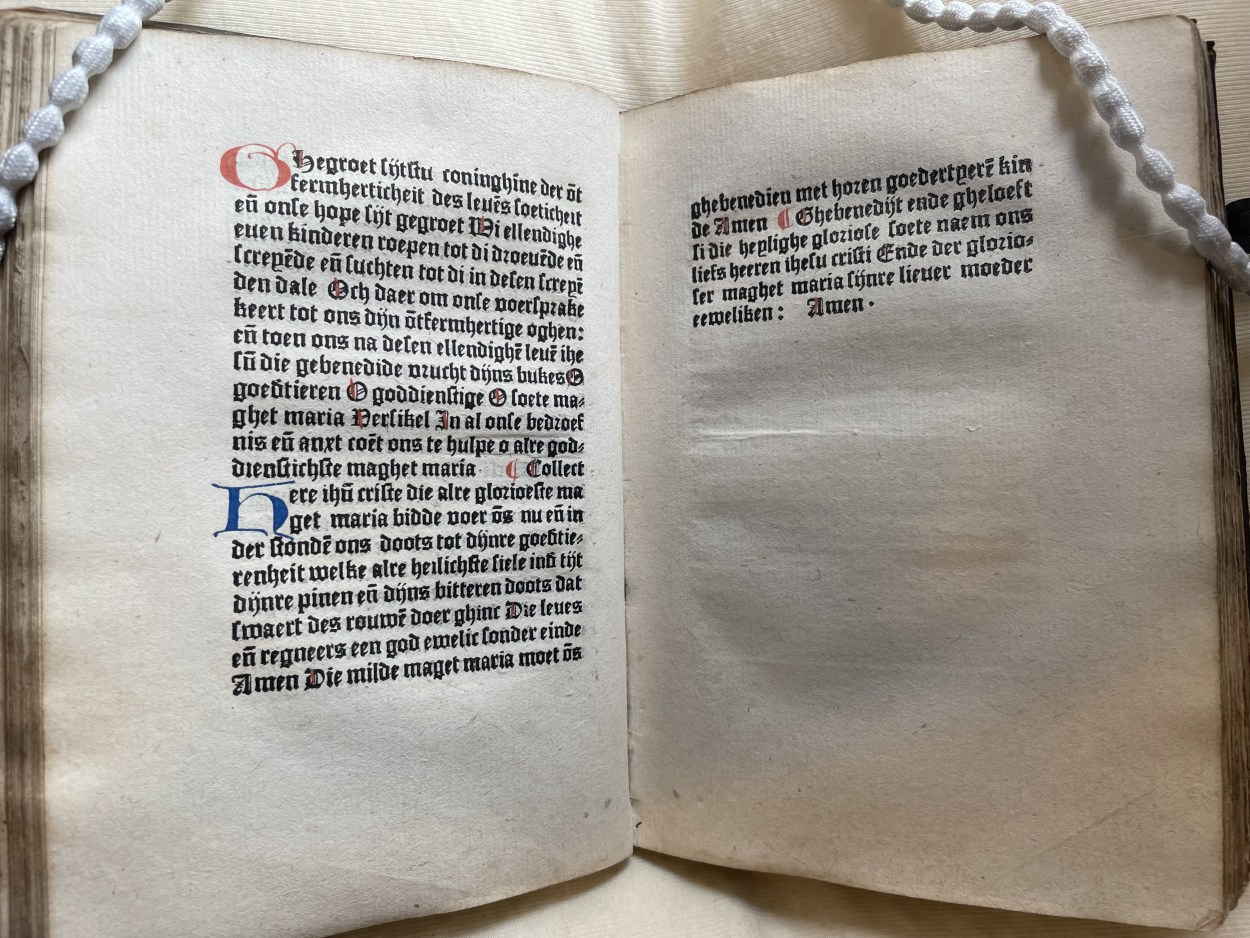 Ghegroet sijtstu coninghine der ōt
fermherticheit des leuēs soeticheit
eñ onse hope sijt gegroet Wi ellendighe
euen kinderen roepen tot di droeuēde eñ
screyēde eñ suchten tot di in desen screyē
den dale Och daer om onse voersprake
keert tot ons dijn ōtfermhertige oghen:
eñ toen ons na desen ellendighē leuē ihe
sū die gebenedide vrucht dijns bukes O
goedtieren O goddienstige O soete ma⸗
ghet maria Versikel In al onse bedroef
nis eñ anxt coēt ons te hulpe o alre god⸗
dienstichste maghet maria ¶ Collect
Here ihū criste die alre glorioeste ma
get maria bidde voer ōs nu eñ in
der stondē ons doots tot dijnre goedtie⸗
renheit welke alre heilichste siele ind tijt
dijnre pinen eñ dijns bitteren doots dat
swaert des rouwē doer ghinc Die leues
eñ regneers een god ewelic sonder einde
Amen Die milde maget maria moet ōs
ghebenedien met horen goedertyerē kin
de Amen ¶ Ghebenedijt ende gheloeft
si die heylighe gloriose soete naem ons
liefs heeren ihesu cristi Ende der glorio⸗
ser maghet maria sijnre lieuer moeder
eeweliken: Amen.